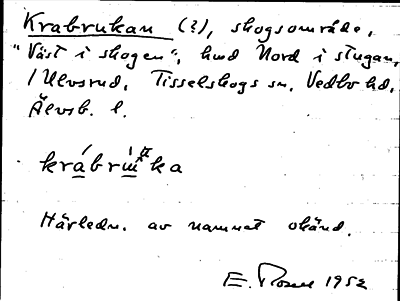 Krabrukan (?), skogsområde,
"Väst i skogen", hmd Nord i stugan,
i Ulvsrud, Tisselskogs sn, Vedbo hd,
Älvsb. l.
krabrɯka
Härledn. av namnet okänd.
E. 1952